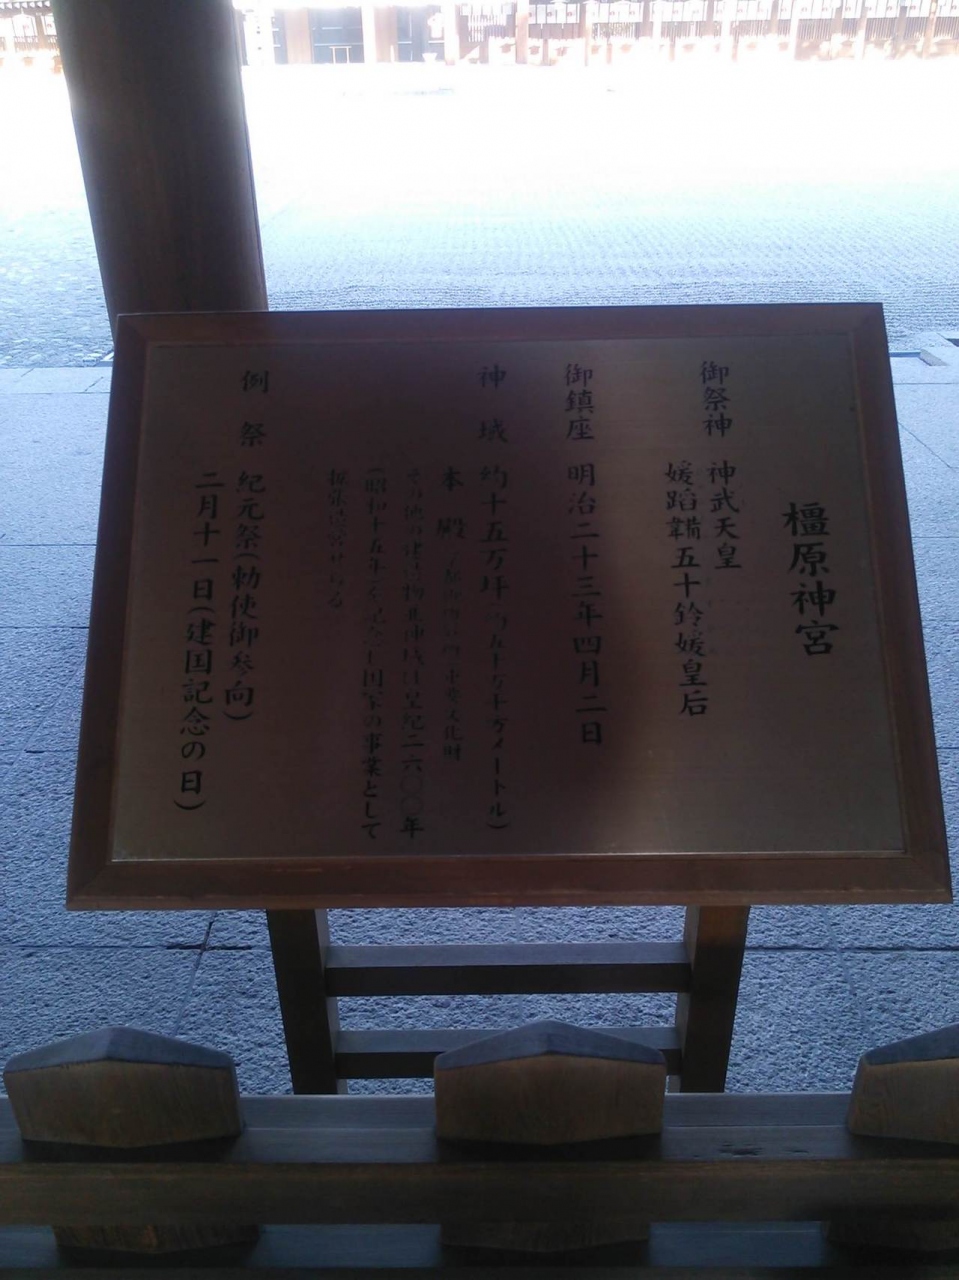 橿原神宮
御祭神 神武天皇
媛蹈韛五十鈴媛皇后
御鎮座 明治二十三年四月二日
神域 約十五万坪(約五十万平方メートル)
本殿 重要文化財
その他の建造物並神域は皇紀二六〇〇年
(昭和十五年)を記念し国家の事業として
拡張造営せらる
例祭 紀元祭(勅使御参向)
二月十一日(建国記念の日)